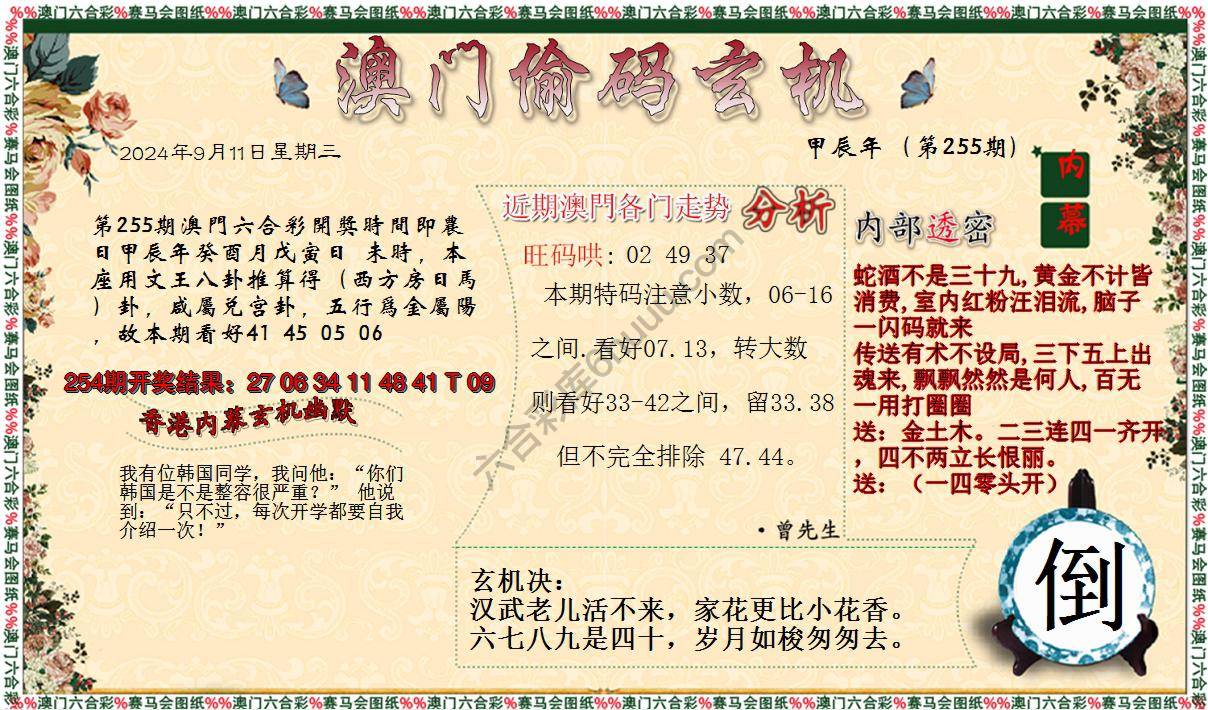 %%澳门六合彩%赛马会图纸%%澳门六合彩%赛马会图纸%%澳门六合彩%赛马会图纸%%澳门六合彩%赛马会图纸%%澳门六合彩%赛马会图纸
澳门偷码玄机
2024年9月11日星期三
甲辰年（第255期）
内幕
第255期澳門六合彩開獎時間即農
日甲辰年癸酉月戊寅日 未時，本
座用文王八卦推算得（西方房日馬
）卦，威屬兑宫卦，五行爲金屬陽
，故本期看好41 45 05 06
254期开奖结果：27 06 34 11 48 41 T 09
香港内幕玄机幽默
我有位韩国同学，我问他：“你们
韩国是不是整容很严重？” 他说
到：“只不过，每次开学都要自我
介绍一次！”
近期澳門各门走势 分析
旺码哄: 02 49 37
本期特码注意小数，06-16
之间.看好07.13，转大数
则看好33-42之间，留33.38
但不完全排除 47.44。
·曾先生
内部透密
蛇酒不是三十九,黄金不计皆
消费,室内红粉汪泪流,脑子
一闪码就来
传送有术不设局,三下五上出
魂来,飘飘然然是何人,百无
一用打圈圈
送：金土木。二三连四一齐开
，四不两立长恨丽。
送：（一四零头开）
玄机决：
汉武老儿活不来，家花更比小花香。
六七八九是四十，岁月如梭匆匆去。
倒